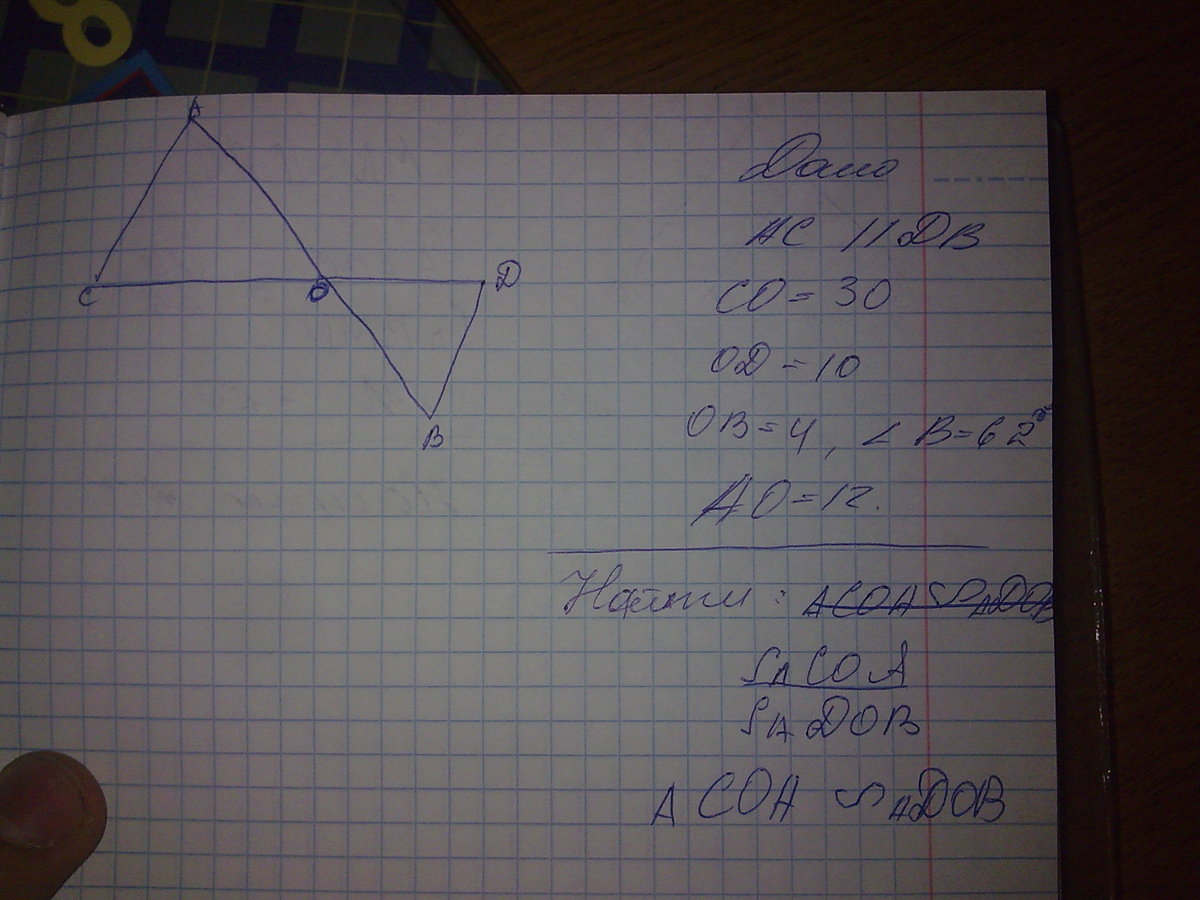 A
C
O
D
B
Дано
AC || DB
CO = 30
OD = 10
OB = 4, ∠ B = 62°
AO = 12.
Найти: ΔCOA ∽ ΔDOB
SΔ COA
SΔ DOB
Δ COA ∽ ΔDOB